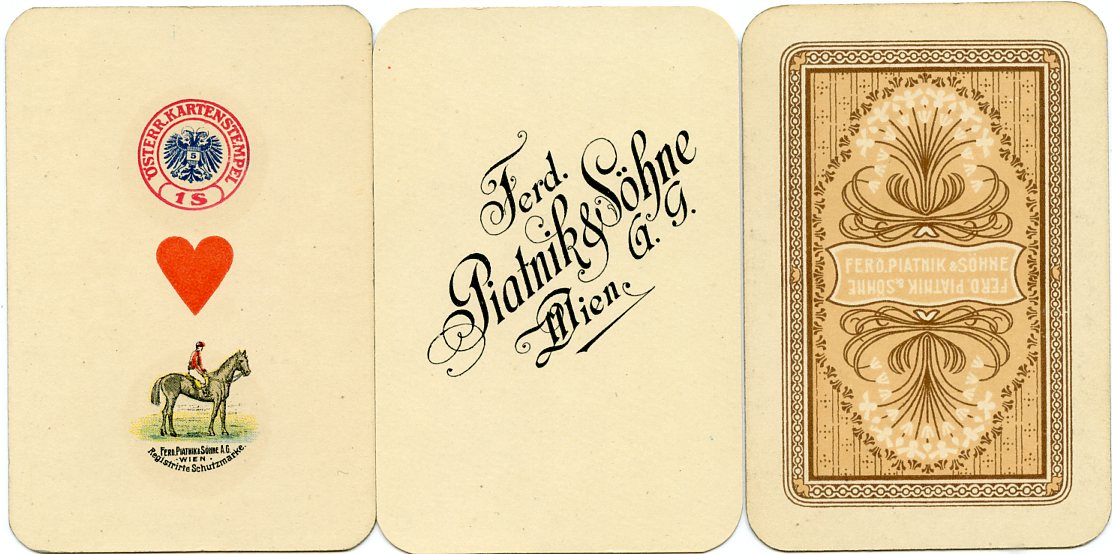 ÖSTERR. KARTENSTEMPEL
5
1 S
FERD. PIATNIK & SÖHNE A.G.
· WIEN ·
Registrirte Schutzmarke.
Ferd.
Piatnik & Söhne
A. G.
Wien
FERD. PIATNIK & SÖHNE
FERD. PIATNIK & SÖHNE